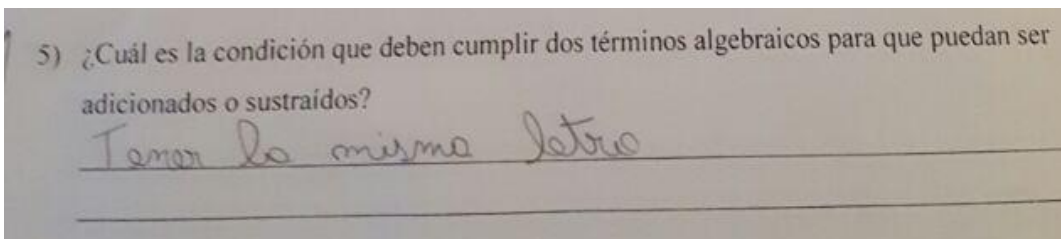 5) ¿Cuál es la condición que deben cumplir dos términos algebraicos para que puedan ser
adicionados o sustraídos?
Tener la misma letra